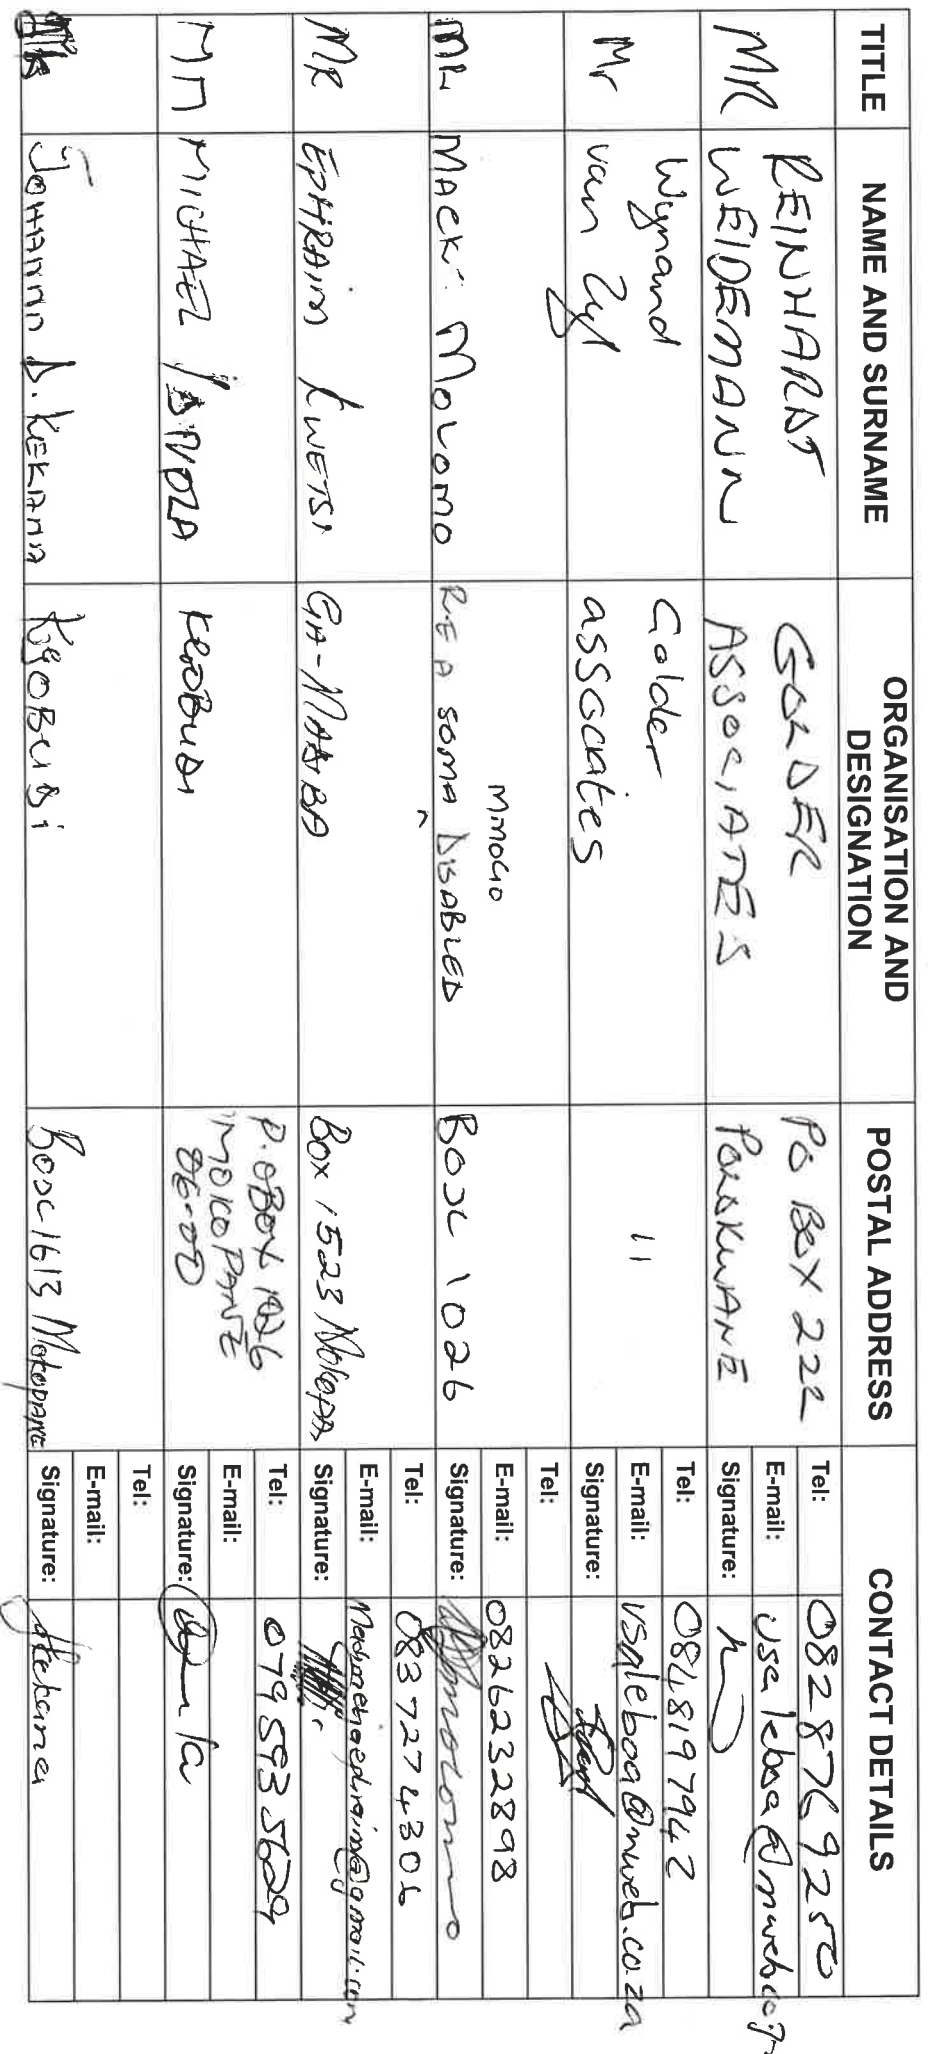 TITLE
NAME AND SURNAME
ORGANISATION AND DESIGNATION
POSTAL ADDRESS
CONTACT DETAILS
MR
REINHARDT
WEIDEMANN
GOLDER
ASSOCIATES
PO BOX 222
POLOKWANE
Tel: 0828769250
E-mail:
Signature:
Mr
Wynand
van Zyl
Golder
associates
11
Tel: 0848197942
E-mail: vsaleboa@mweb.co.za
Signature:
MR
MACK MOLOMO
MMOGO
R-E A SOMA DISABLED
^
Box 1026
Tel:
E-mail: 0826232898
Signature: molomo
MR
EPHRAIM KWETSI
GA-MADIBA
Box 1523
Tel: 0837274306
E-mail:
Signature:
MICHAEL
P.O BOX
MOKOPANE
Tel: 0795935629
E-mail:
Signature:
D. KEKANA
KgoBudi
Box 1613 Mokopane
Tel:
E-mail:
Signature: Kekana